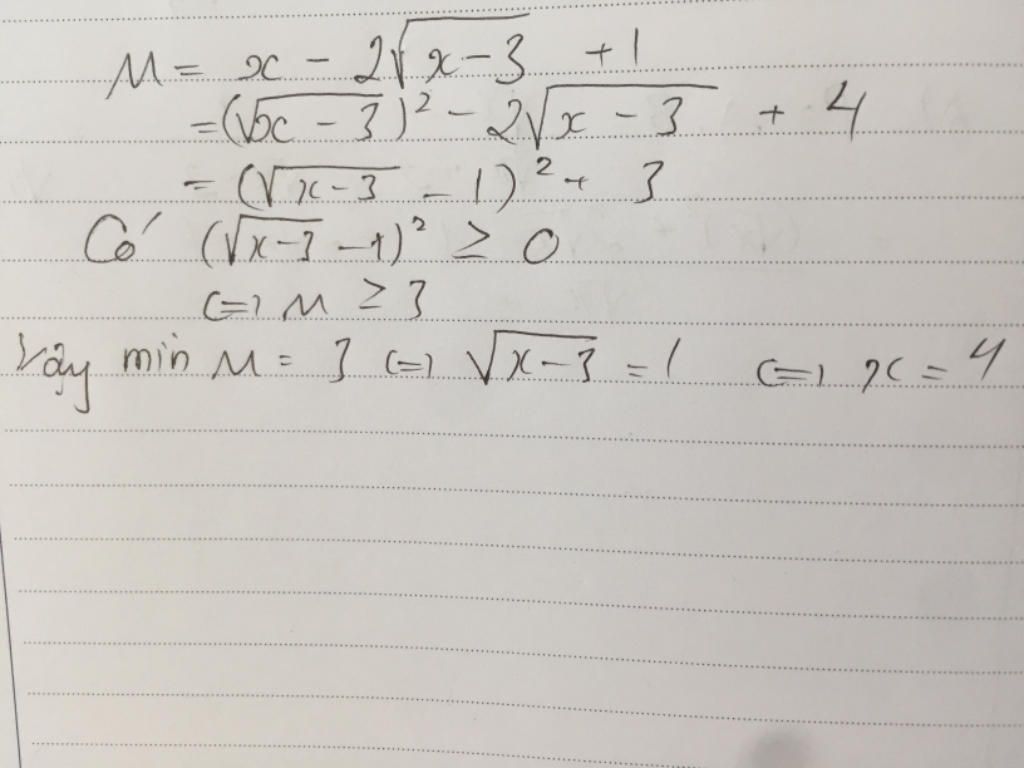 M = x - 2√(x-3) + 1
= (√(x-3))² - 2√(x-3) + 4
= (√(x-3) - 1)² + 3
Có (√(x-3) - 1)² ≥ 0
(=) M ≥ 3
Vậy min M = 3 (=) √(x-3) = 1 (=) x = 4